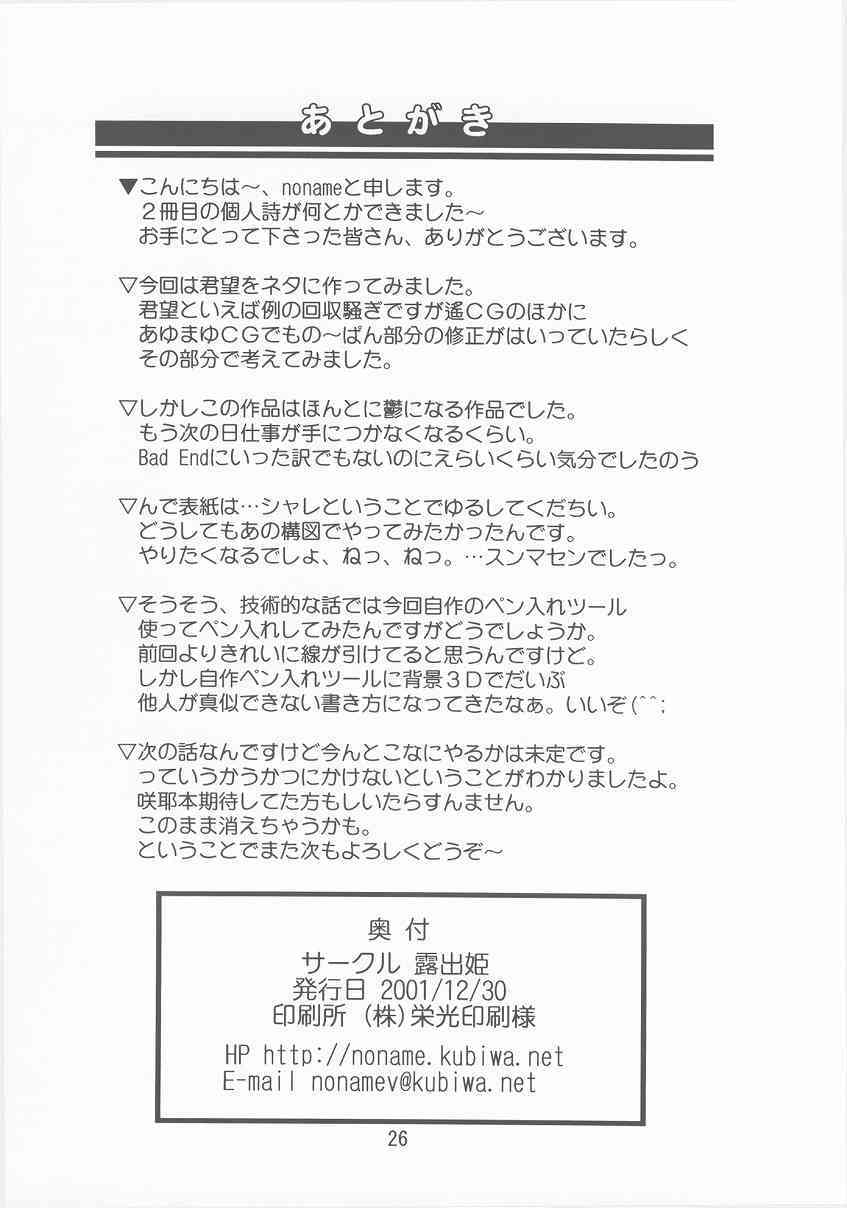 あとがき
▼こんにちは～、nonameと申します。
２冊目の個人詩が何とかできました～
お手にとって下さった皆さん、ありがとうございます。
▽今回は君望をネタに作ってみました。
君望といえば例の回収騒ぎですが遙ＣＧのほかに
あゆまゆＣＧでもの～ぱん部分の修正がはいっていたらしく
その部分で考えてみました。
▽しかしこの作品はほんとに鬱になる作品でした。
もう次の日仕事が手につかなくなるくらい。
Bad Endにいった訳でもないのにえらいくらい気分でしたのう
▽んで表紙は…シャレということでゆるしてくだちい。
どうしてもあの構図でやってみたかったんです。
やりたくなるでしょ、ねっ、ねっ。…スンマセンでしたっ。
▽そうそう、技術的な話では今回自作のペン入れツール
使ってペン入れしてみたんですがどうでしょうか。
前回よりきれいに線が引けてると思うんですけど。
しかし自作ペン入れツールに背景３Ｄでだいぶ
他人が真似できない書き方になってきたなぁ。いいぞ(^^;
▽次の話なんですけど今んとこなにやるかは未定です。
っていうかうかつにかけないということがわかりましたよ。
咲耶本期待してた方もしいたらすんません。
このまま消えちゃうかも。
ということでまた次もよろしくどうぞ～
奥付
サークル 露出姫
発行日 2001/12/30
印刷所 （株）栄光印刷様
HP http://noname.kubiwa.net
E-mail nonamev@kubiwa.net
26